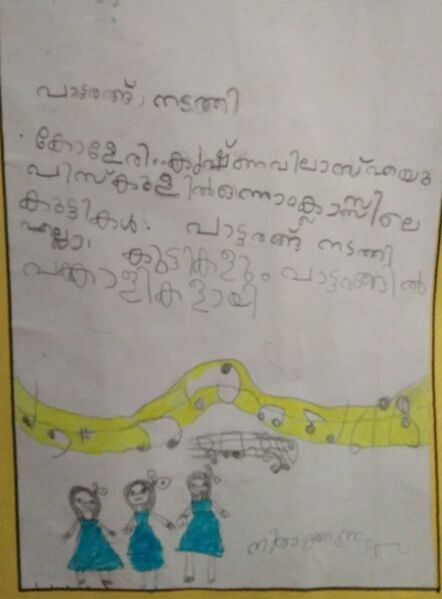 പാട്ടരങ്ങ് നടത്തി
കോളേരി. കൃഷ്ണവിലാസ് എയു
പിസ്കൂളിൽ ഒന്നാംക്ലാസ്സിലെ
കുട്ടികൾ. പാട്ടരങ്ങ് നടത്തി
എല്ലാ. കുട്ടികളും പാട്ടരങ്ങിൽ
പങ്കാളികളായി